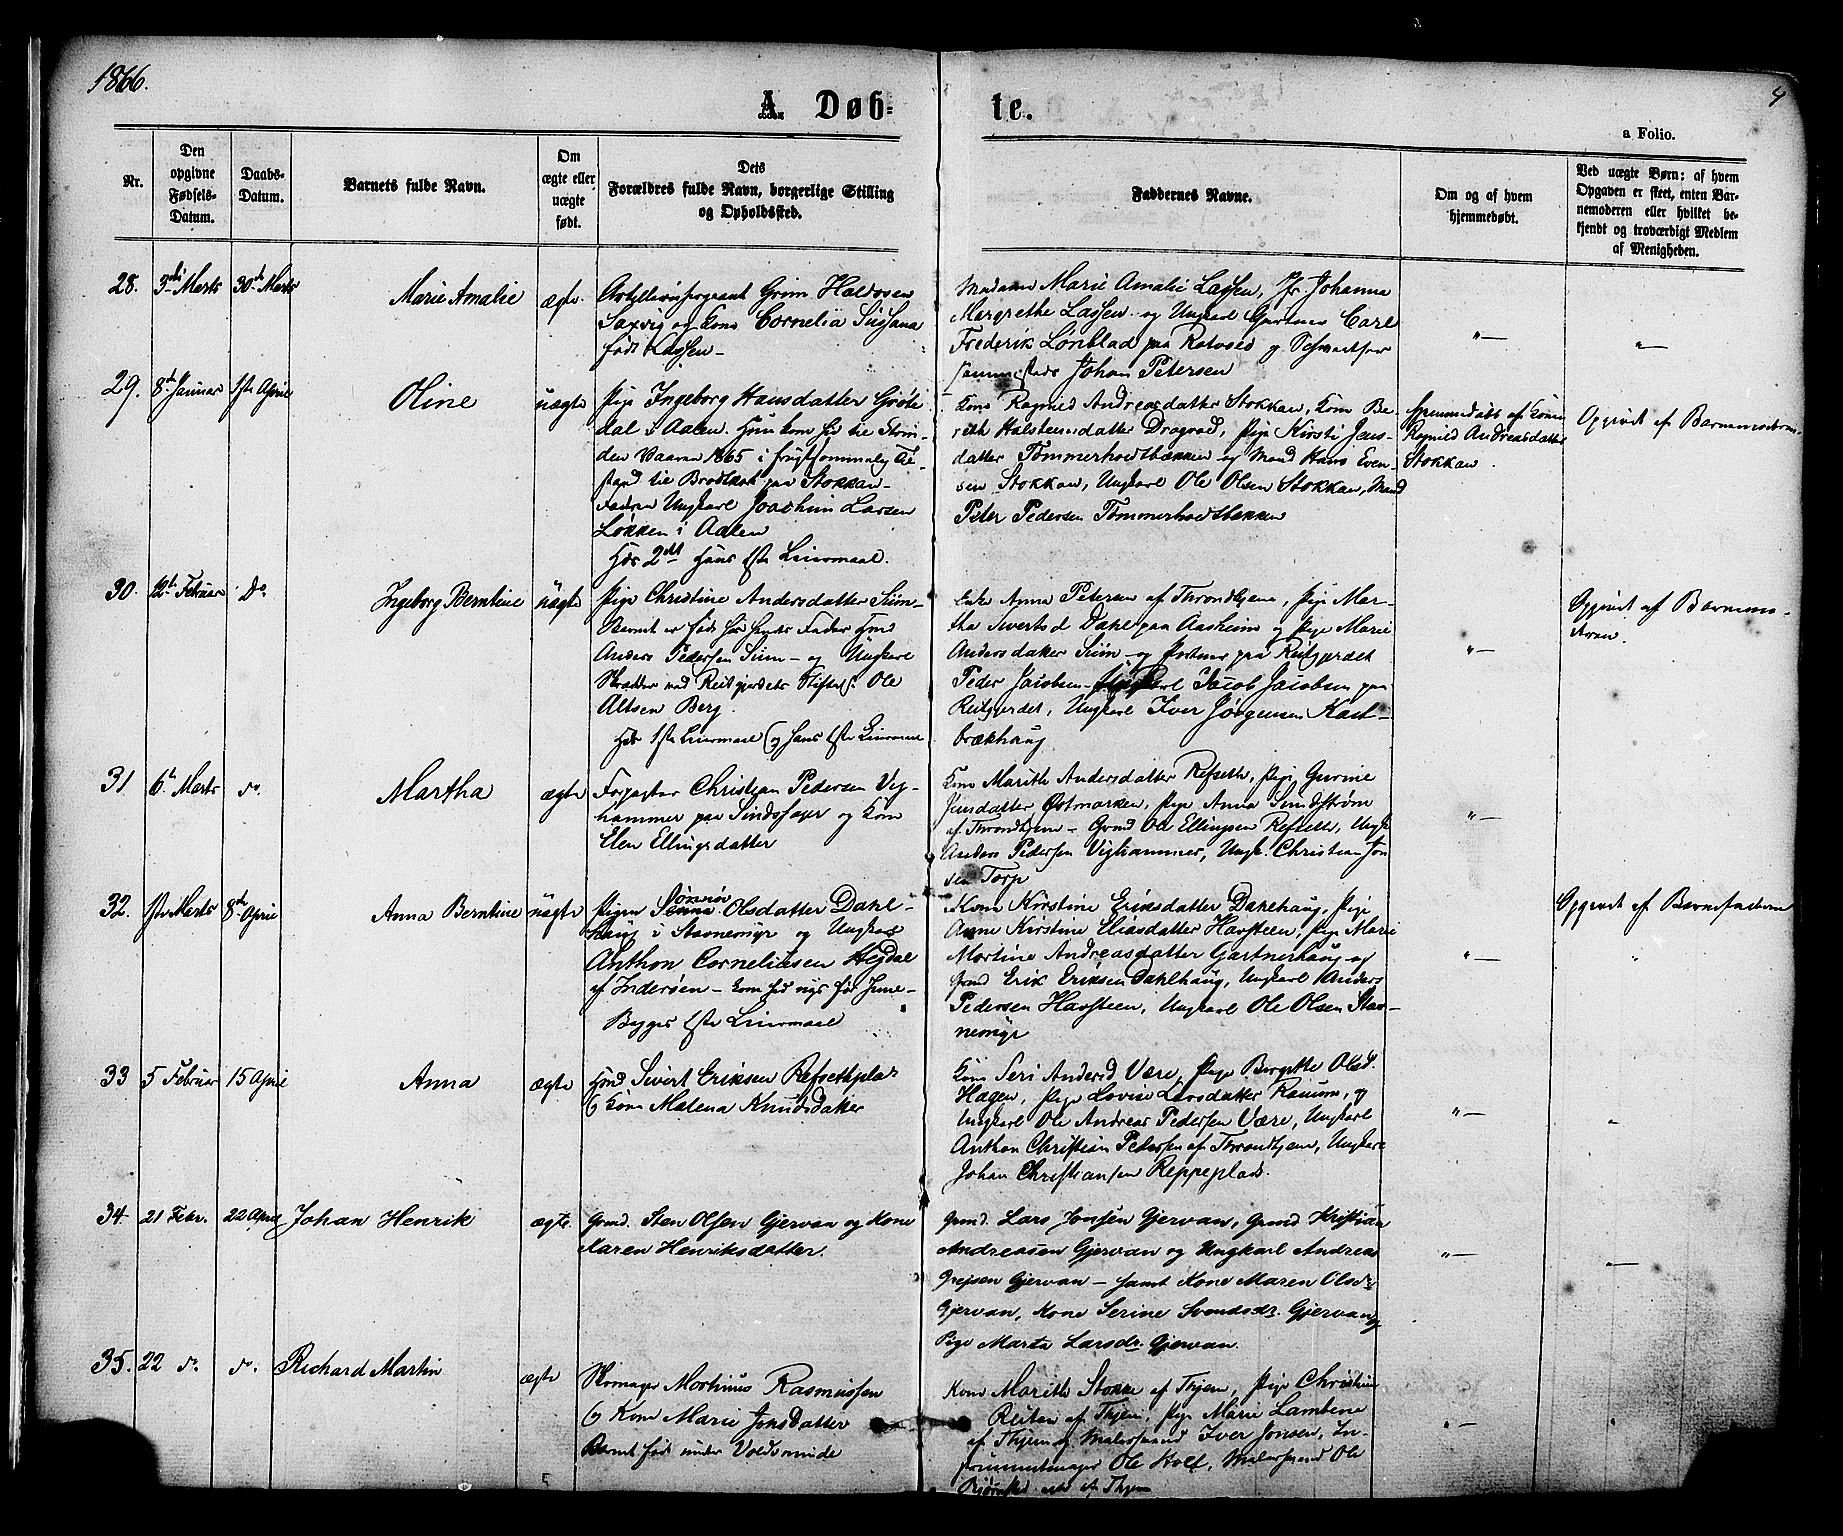 1866.
4
A. Døb-
te.
a Folio.
Nr.
Den opgivne Fødsels-Datum.
Daabs-Datum.
Barnets fulde Navn.
Om ægte eller uægte født.
Dets
Forældres fulde Navn, borgerlige Stilling
og Opholdssted.
Faddernes Navne.
Om og af hvem
hjemmedøbt.
Ved uægte Børn: af hvem
Opgaven er skeet, enten Bar-
nemoderen eller hvilket be-
kjendt og troværdigt Medlem
af Menigheden.
28. 3die Marts 30te Marts Marie Amalie ægte
Grim Haldorsen
Saxvig og Kone Cornelia Sussana
født Lassen
Madame Marie Amalie Lassen, Jfr. Johanna
Margrethe Lassen og Ungkarl Gartner Carl
Frederik Lønblad paa Rotvold og
Johan Petersen
"—
"—
29. 8de Januar 1ste April Oline uægte
Pige Ingeborg Hansdatter Grøte
dal i Aalen. Hun kom hid til Strin-
den Vaaren 1865 i frugtsommelig Til-
stand til Broderen paa Stokkan
Faderen Ungkarl Joachim Larsen
Løkken i Aalen
Hdes 2det Hans 1ste Leiermaal.
Kone Ragnild Andreasdatter Stokkan, Kone Be-
rith Halstensdatter Dragvold, Pige Kirsti Jens-
datter Tømmerholdtbakken og Mand Hans Even-
sen Stokkan, Ungkarl Ole Olsen Stokkan, Mand
Peter Pedersen Tømmerholdtbakken
Hjemmedøbt af Kone
Ragnild Andreasdatter
Stokkan.
Opgivet af Barnemoderen.
30. 12te Februar do. Ingeborg Berntine uægte
Pige Christine Andersdatter Siim
Barnet er født hos hendes Fader Hmd
Anders Pedersen Siim — og Ungkarl
Skrædder ved Reitgjerdets Stiftelse Ole
Altsen Berg.
Hdes 1ste Leiermaal og hans 1ste Leiermaal
Enke Anna Petersen af Throndhjem, Pige Mar-
tha Sivertsd Dahl paa Aasheim og Pige Marie
Andersdatter Siim og Portner paa Reitgjerdet
Peder Jacobsen Jacob Jacobsen paa
Reitgjerdet, Ungkarl Iver Jørgensen Kast-
brækhaug
"—
Opgivet af Barnemo-
deren.
31 6te Marts do. Martha ægte
Forpagter Christian Pedersen Vig-
hammer paa Sindssaxer og Kone
Elen Ellingsdatter
Kone Marith Andersdatter Refseth, Pige Gurine
Jensdatter Østmarken, Pige Anna Sundstrøm
af Throndhjem — Gmd Ole Ellingsen Refseth, Ungk.
Anders Pedersen Vighammer, Ungk. Christian Jon
sen Torp
"—
32. 1ste Marts 8de April Anna Berntine uægte
Pigen Olsdatter Dahl-
haug i Stavnemyr og Ungkarl
Anthon Corneliusen Hegdal
af Inderøen — kom hid nys før Jule—
Begges 1ste Leiermaal
Kone Kirstine Eriksdatter Dahlhaug, Pige
Anne Kirstine Eliasdatter Havsteen, Pige Marie
Martine Andreasdatter Gartnerhaug og
Gmd Erik Eriksen Dahlhaug, Ungkarl Anders
Pedersen Havsteen, Ungkarl Ole Olsen Stav-
nemyr
"—
Opgivet af Barnefaderen
"
33 5 Februar 15 April Anna ægte
Hmd Sivert Eriksen Refsethplas
og Kone Malena Knudsdatter
Kone Seri Andersd Være, Pige Bergitte Olsd.
Hagen, Pige Lovise Larsdatter Ranum, og
Ungkarl Ole Andreas Pedersen Være, Ungkarl
Anthon Christian Pedersen af Throndhjem, Ungkarl
Johan Christiansen Reppeplads.
"—
"
34. 21 Febr. 22 April Johan Henrik ægte
Gmd. Sten Olsen Gjervan og Kone
Karen Henriksdatter.
Gmd. Lars Jonsen Gjervan, Gmd Kristian
Andreassen Gjervan og Ungkarl Andreas
Grejsen Gjervan — samt Kone Maren Olsdr
Gjervan, Kone Serine Svendsdr. Gjervan og
Pige Marta Larsdr. Gjervan.
"—
"—
35. 22 do. do. Richard Martin ægte
Skomager Mortinus Rasmussen
og Kone Marie Jonsdatter
Barnet født under Voldsminde
Kone Marith Stokke af Thjem, Pige Christine
Reitan af Thjem, Pige Marie Lambene
af Thjem og Malersvend Iver Jonsen, In-
strumentmager Ole Holt, Malersvend Ole
af Thjem
"—
"